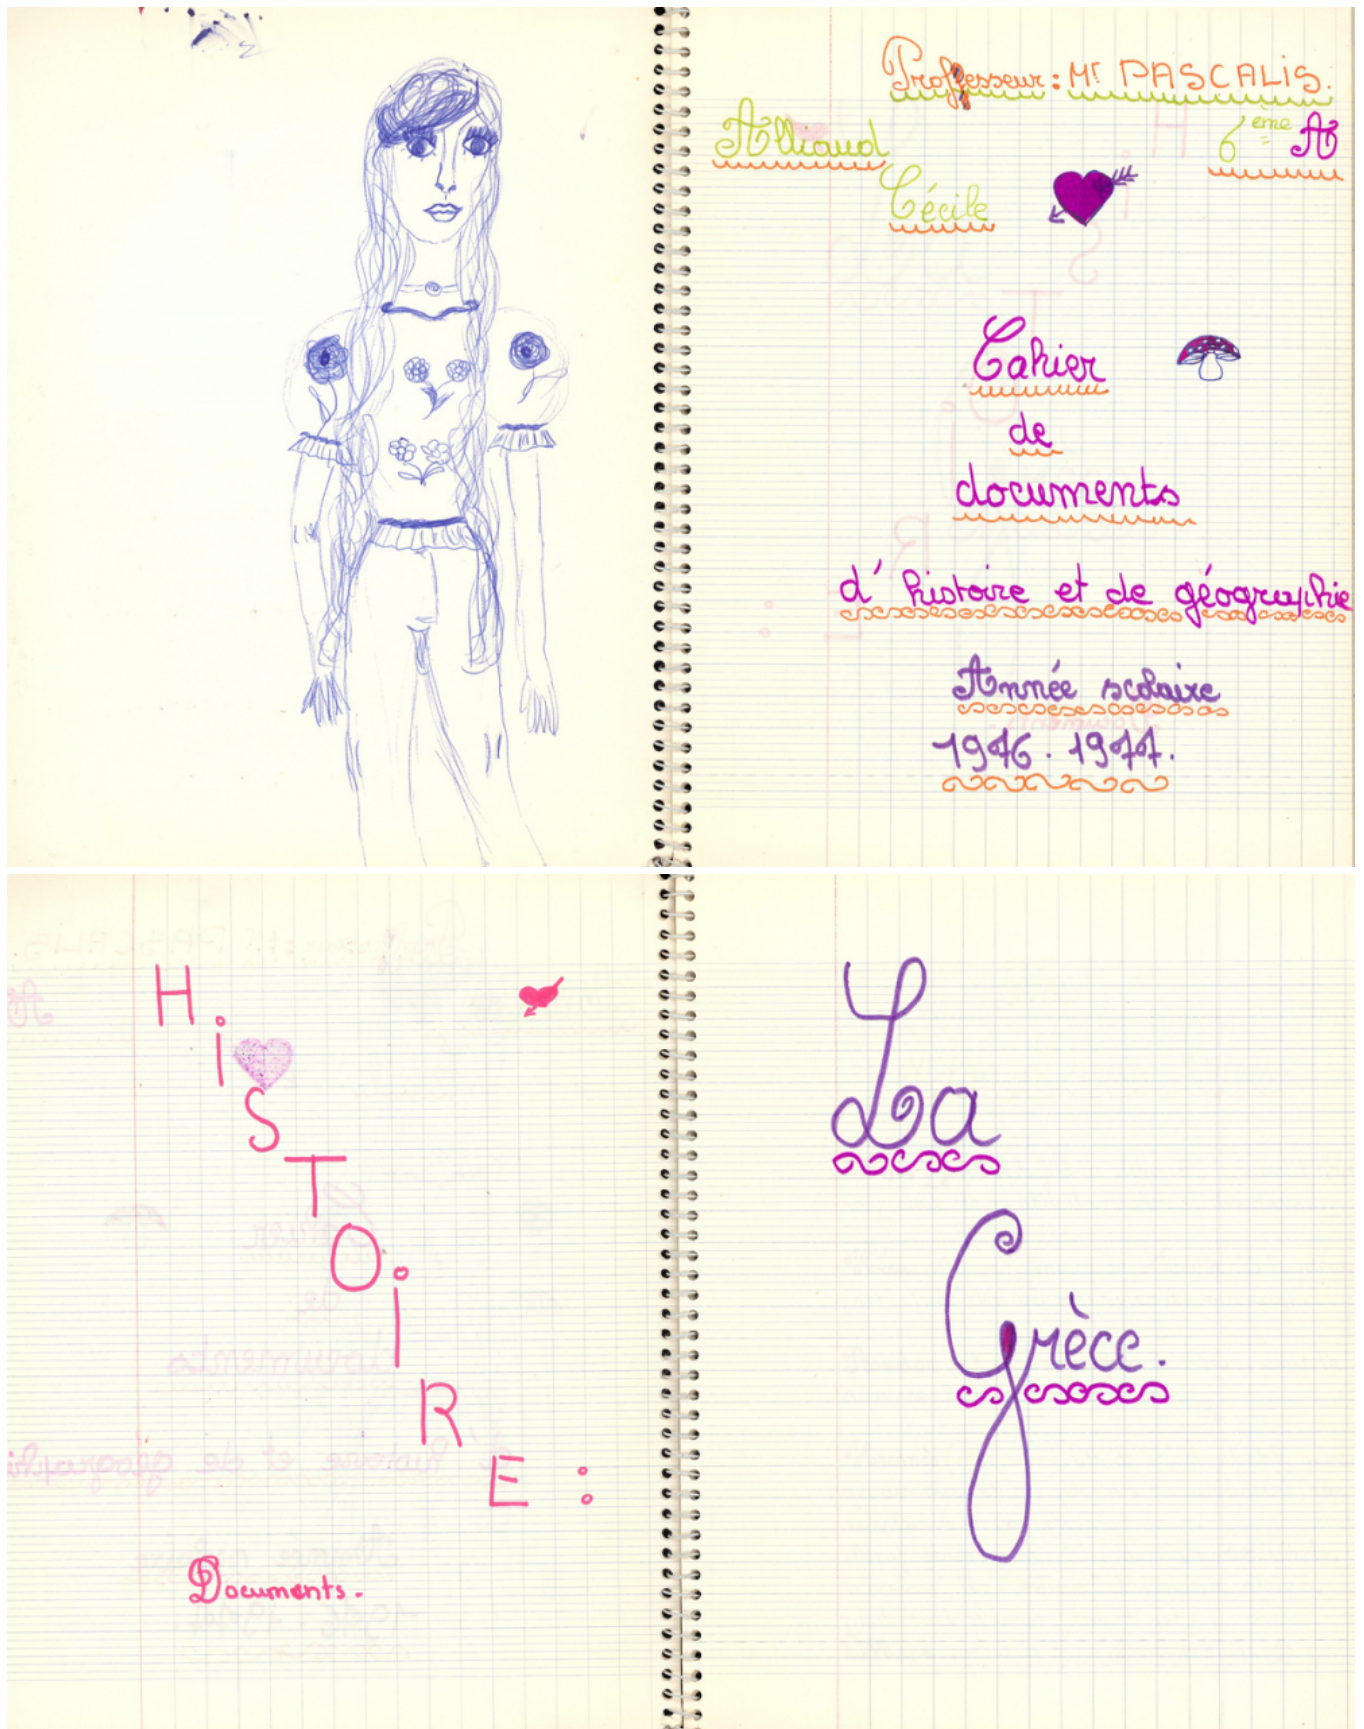 Professeur : Mr PASCALIS.
Alliaud
6ème A
Cécile
Cahier
de
documents
d'histoire et de géographie
Année scolaire
1976. 1977.
HiSTOiRE :
Documents.
La
Grèce.